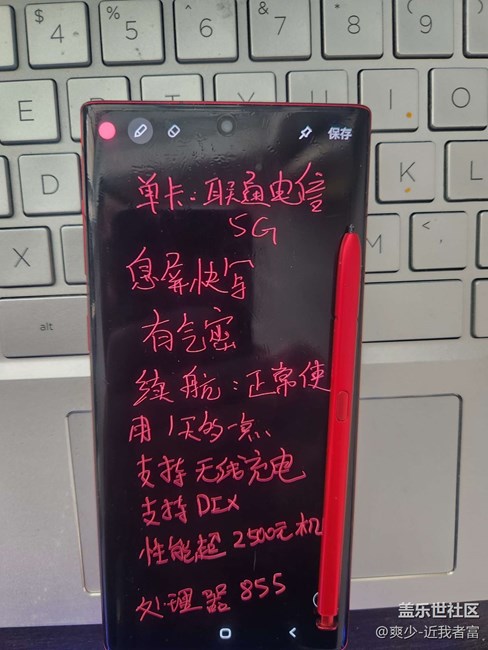 $ 4
% 5
6
& 7
* 8
( 9
E
R
T
Y
U
I
O
K
L
X
M
<
alt
保存
单卡:联通电信
5G
息屏快写
有气密
续航:正常使
用1天多一点
支持无线充电
支持DEX
性能超2500元机
处理器 855
盖乐世社区
@爽少-近我者富